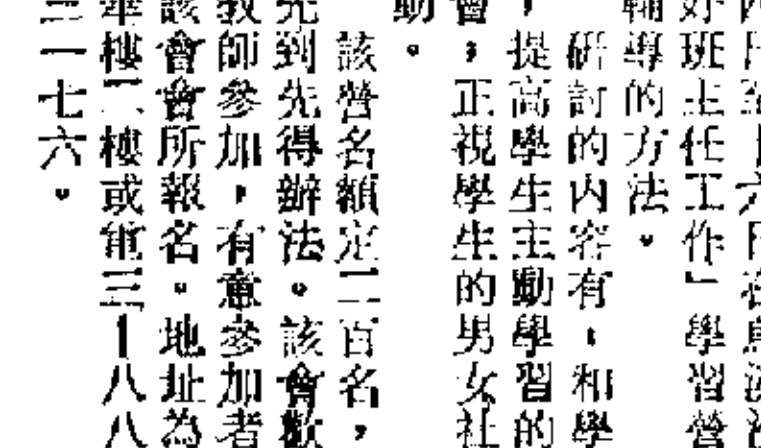 六日在
好班主任工作」學習營
輔導的方法。
研討的內容有，和學
，提高學生主動學習的
會，正視學生的男女社
動。
該營名額定二百名，
先到先得辦法。該會歡
教師參加，有意參加者
該會會所報名。地址為
華樓二樓或電三—八八
三一七六。